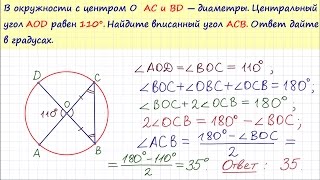 В окружности с центром O AC и BD — диаметры. Центральный
угол AOD равен 110°. Найдите вписанный угол ACB. Ответ дайте
в градусах.
D
C
O
110°
A
B
∠AOD = ∠BOC = 110°,
∠BOC + ∠OBC + ∠OCB = 180°,
∠BOC + 2∠OCB = 180°,
2∠OCB = 180° − ∠BOC;
∠ACB = (180° − ∠BOC)/2 =
= (180° − 110°)/2 = 35° Ответ: 35